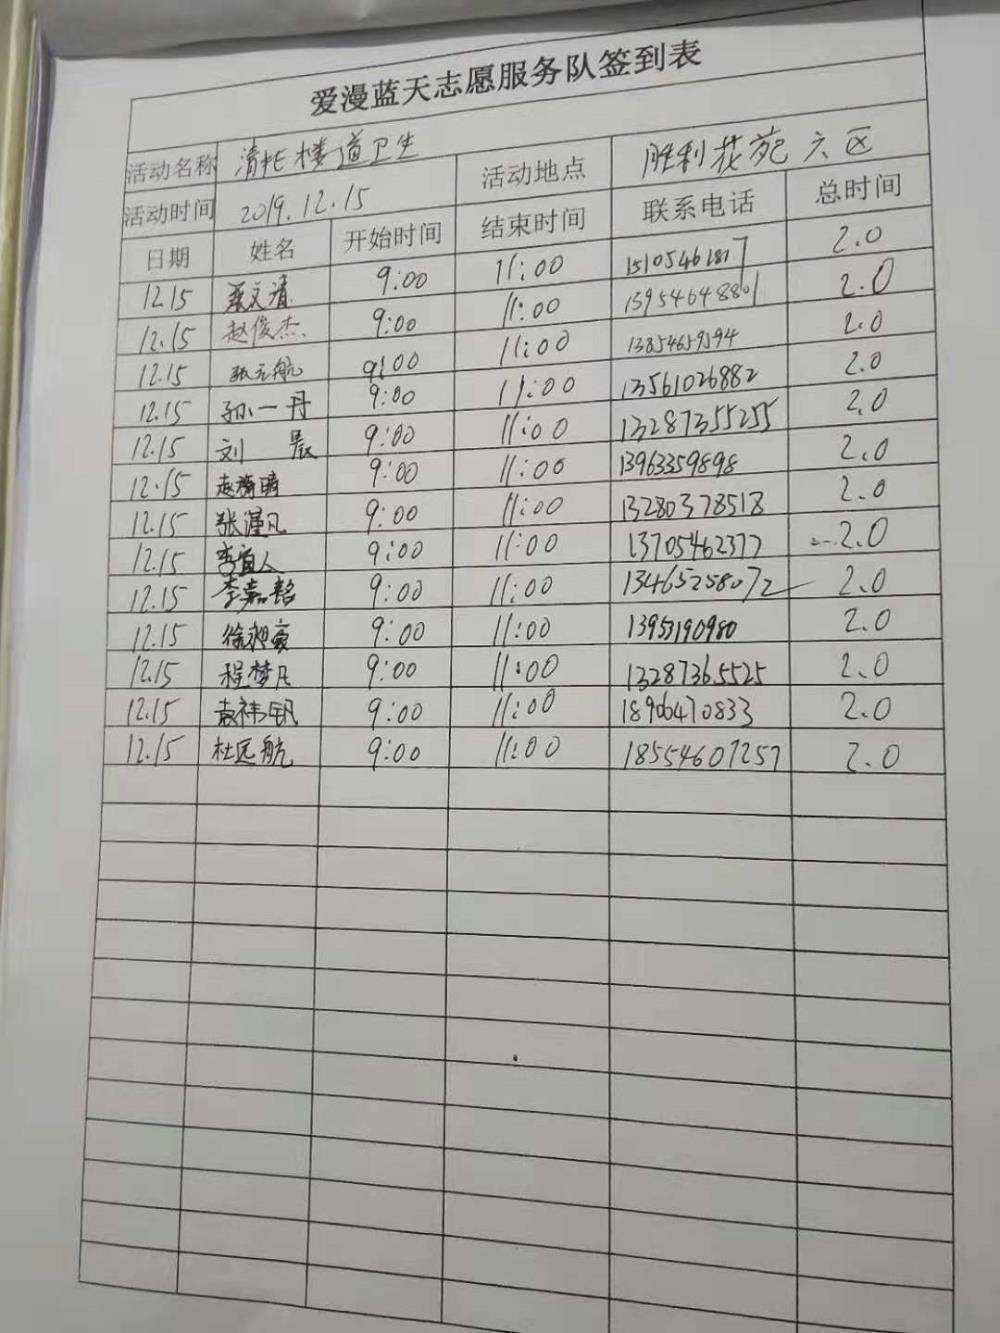 爱漫蓝天志愿服务队签到表
活动名称 清扫楼道卫生 活动地点 胜利花苑六区
活动时间 2019.12.15
日期 姓名 开始时间 结束时间 联系电话 总时间
12.15 9:00 11:00 2.0
12.15 赵俊杰 9:00 11:00 13954648801 2.0
12.15 张元航 9:00 11:00 13854659594 2.0
12.15 孙一丹 9:00 11:00 13561026882 2.0
12.15 刘晨 9:00 11:00 13287355255 2.0
12.15 9:00 11:00 13963359898 2.0
12.15 张潼凡 9:00 11:00 13280378518 2.0
12.15 李宜人 9:00 11:00 13705462377 2.0
12.15 李嘉懿 9:00 11:00 13465258072 2.0
12.15 9:00 11:00 2.0
12.15 程梦凡 9:00 11:00 13287365525 2.0
12.15 9:00 11:00 18906470833 2.0
12.15 杜远航 9:00 11:00 18554607257 2.0